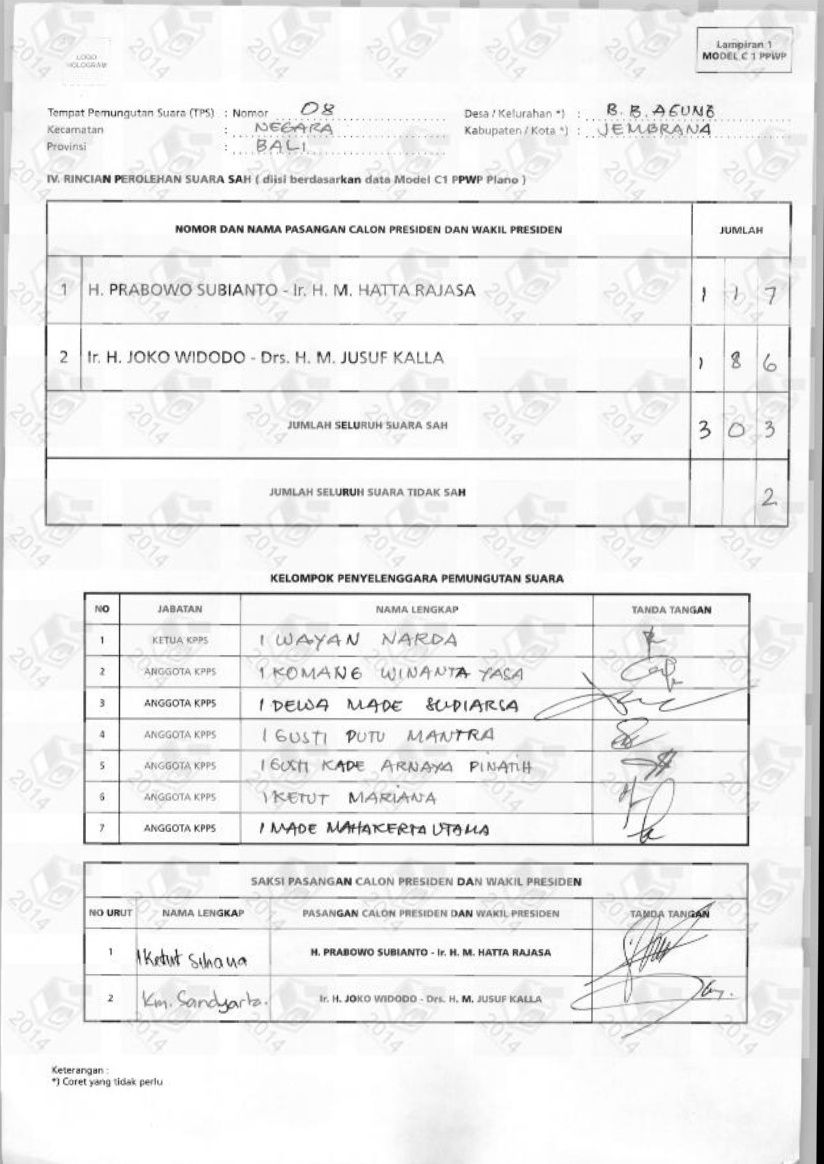 LOGO
HOLOGRAM
Lampiran 1
MODEL C 1 PPWP
Tempat Pemungutan Suara (TPS) : Nomor 08
Desa / Kelurahan *) : B. B. AGUNG
Kecamatan : NEGARA
Kabupaten / Kota *) : JEMBRANA
Provinsi : BALI
IV. RINCIAN PEROLEHAN SUARA SAH ( diisi berdasarkan data Model C1 PPWP Plano )
NOMOR DAN NAMA PASANGAN CALON PRESIDEN DAN WAKIL PRESIDEN JUMLAH
1 H. PRABOWO SUBIANTO - Ir. H. M. HATTA RAJASA 1 1 7
2 Ir. H. JOKO WIDODO - Drs. H. M. JUSUF KALLA 1 8 6
JUMLAH SELURUH SUARA SAH 3 0 3
JUMLAH SELURUH SUARA TIDAK SAH 2
KELOMPOK PENYELENGGARA PEMUNGUTAN SUARA
NO JABATAN NAMA LENGKAP TANDA TANGAN
1 KETUA KPPS I WAYAN NARDA
2 ANGGOTA KPPS I KOMANG WINANTA YASA
3 ANGGOTA KPPS I DEWA MADE SUDIARSA
4 ANGGOTA KPPS I GUSTI PUTU MANTRA
5 ANGGOTA KPPS I GUSTI KADE ARNAYA PINATIH
6 ANGGOTA KPPS I KETUT MARIANA
7 ANGGOTA KPPS I MADE MAHAKERTA UTAMA
SAKSI PASANGAN CALON PRESIDEN DAN WAKIL PRESIDEN
NO URUT NAMA LENGKAP PASANGAN CALON PRESIDEN DAN WAKIL PRESIDEN TANDA TANGAN
1 I Ketut H. PRABOWO SUBIANTO - Ir. H. M. HATTA RAJASA
2 Km. Sandyarta. Ir. H. JOKO WIDODO - Drs. H. M. JUSUF KALLA
Keterangan :
*) Coret yang tidak perlu